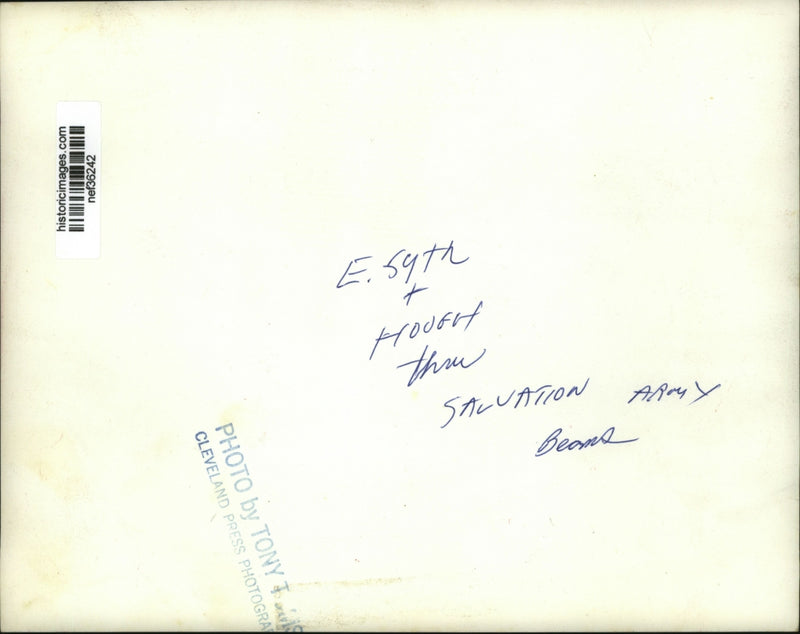 historicimages.com
nef36242
E. 59th
+
HOUGH
thru
SALVATION ARMY
Beams
PHOTO by TONY
CLEVELAND PRESS